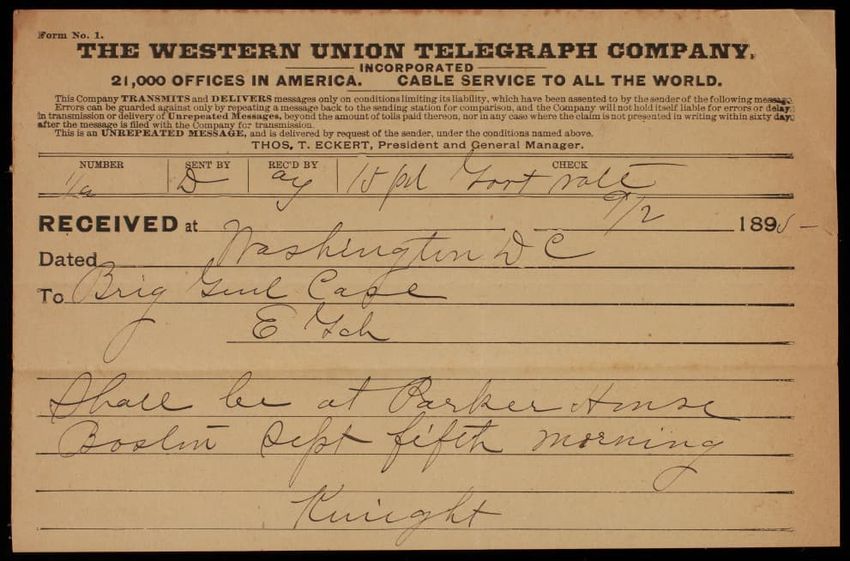 Form No. 1.
THE WESTERN UNION TELEGRAPH COMPANY.
INCORPORATED
21,000 OFFICES IN AMERICA. CABLE SERVICE TO ALL THE WORLD.
This Company TRANSMITS and DELIVERS messages only on conditions limiting its liability, which have been assented to by the sender of the following message.
Errors can be guarded against only by repeating a message back to the sending station for comparison, and the Company will not hold itself liable for errors or delay
in transmission or delivery of Unrepeated Messages, beyond the amount of tolls paid thereon, nor in any case where the claim is not presented in writing within sixty days
after the message is filed with the Company for transmission.
This is an UNREPEATED MESSAGE, and is delivered by request of the sender, under the conditions named above.
THOS. T. ECKERT, President and General Manager.
NUMBER SENT BY REC'D BY CHECK
D ay 15 pd Govt rate
RECEIVED at 9/2 1895
Dated Washington D C
To Brig Genl Case
E Gch
Shall be at Parker House
Boston Sept fifth morning
Knight